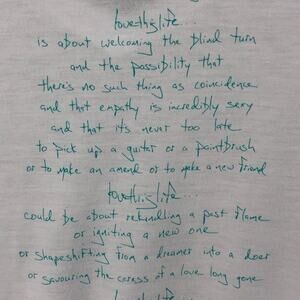 lovethislife...
is about welcoming the blind turn
and the possibility that
there's no such thing as coincidence
and that empathy is incredibly sexy
and that its never too late
to pick up a guitar or a paintbrush
or to make an amend or to make a new friend
lovethislife...
could be about rekindling a past flame
or igniting a new one
or shapeshifting from a dreamer into a doer
or savouring the caress of a love long gone